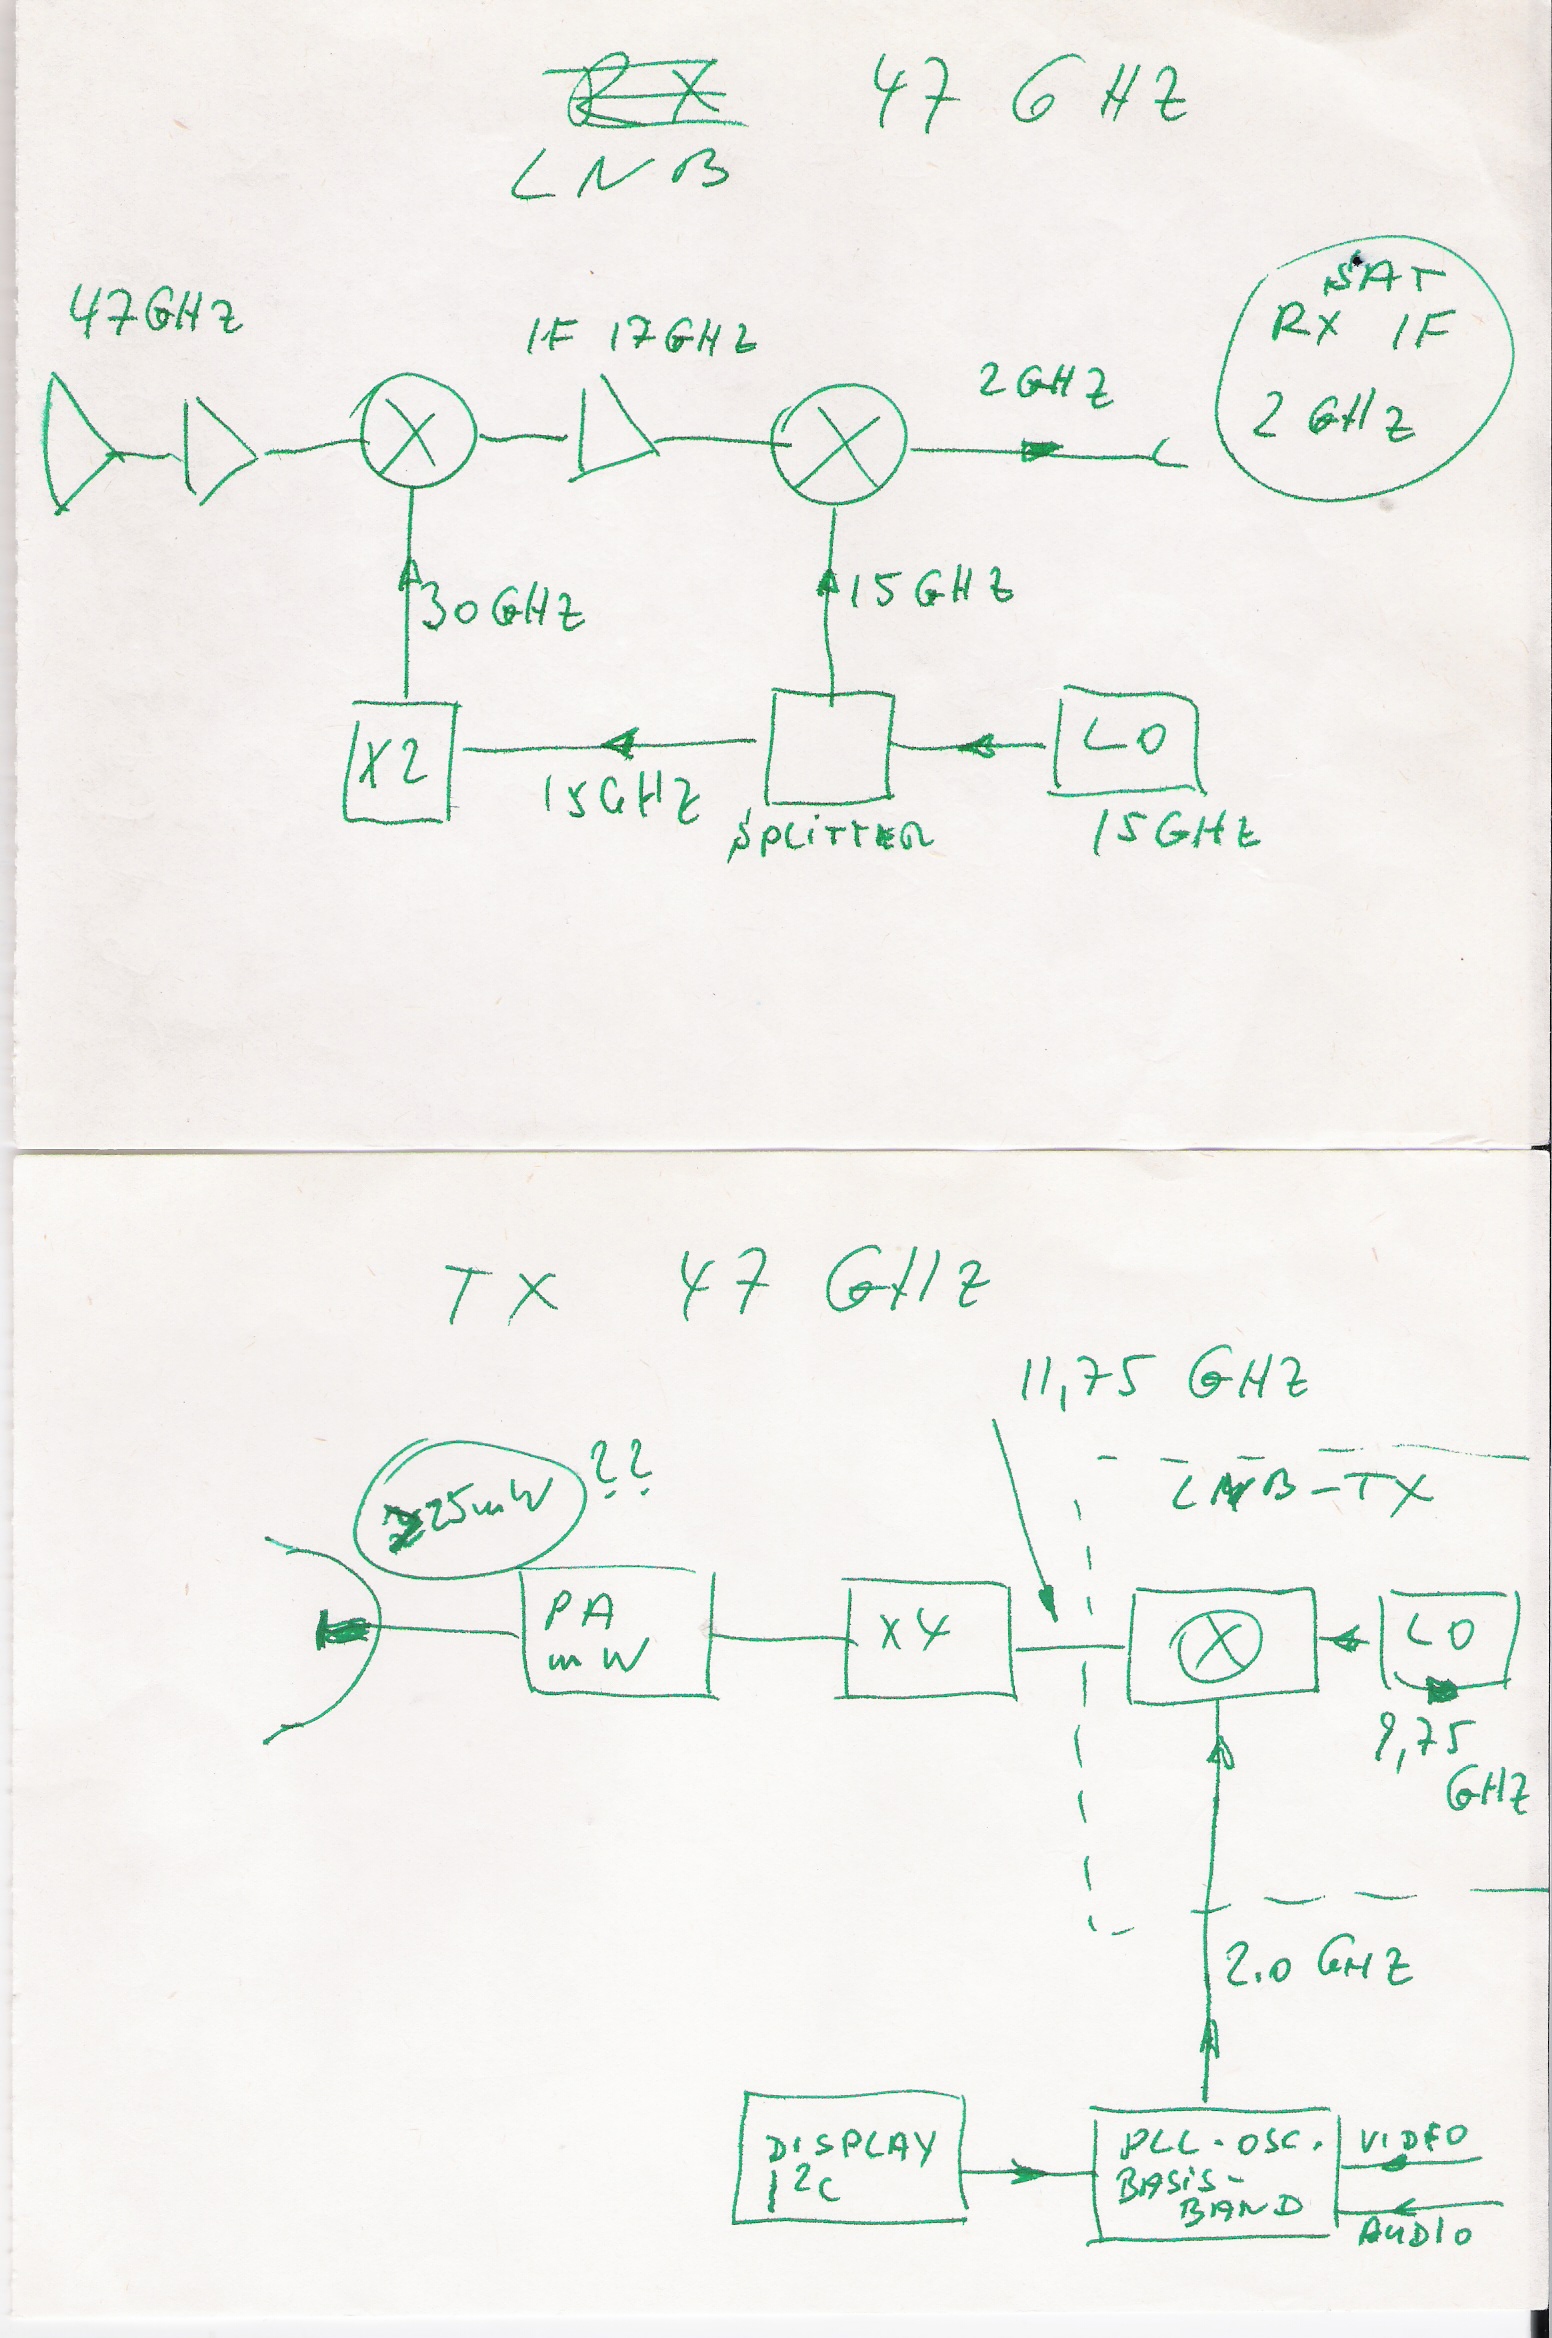 RX 47 GHZ
LNB
47GHZ
IF 17GHZ
2GHZ
SAT
RX IF
2 GHZ
30GHZ
15GHZ
X2
15GHZ
SPLITTER
LO
15GHZ
TX 47 GHZ
11,75 GHZ
25mW ??
LNB-TX
PA
mW
X4
LO
9,75
GHZ
2.0 GHZ
DISPLAY
I²C
PLL-OSC.
BASIS-
BAND
VIDEO
AUDIO